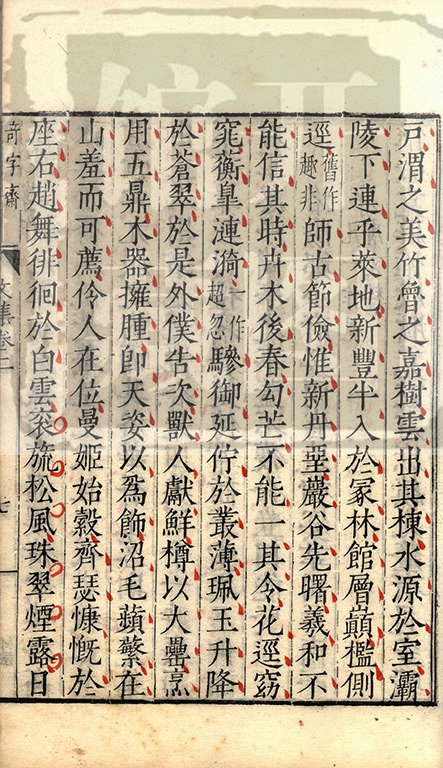 戸渭之美竹魯之嘉樹雲出其棟水源於室灞
陵下連乎菜地新豐半入於冢林館層巔檻側
逕舊作趣非師古節儉惟新丹堊巖谷先曙羲和不
能信其時卉木後春勾芒不能一其令花逕窈
窕蘅臯漣漪一作超忽驂御延佇於叢薄珮玉升降
於蒼翠於是外僕告次獸人獻鮮樽以大罍烹
用五鼎木器擁腫卽天姿以爲飾沼毛蘋蘩在
山羞而可薦伶人在位曼姬始縠齊瑟慷慨於
座右趙舞徘徊於白雲衮旒松風珠翠煙露日
奇字齋
文集卷二
七